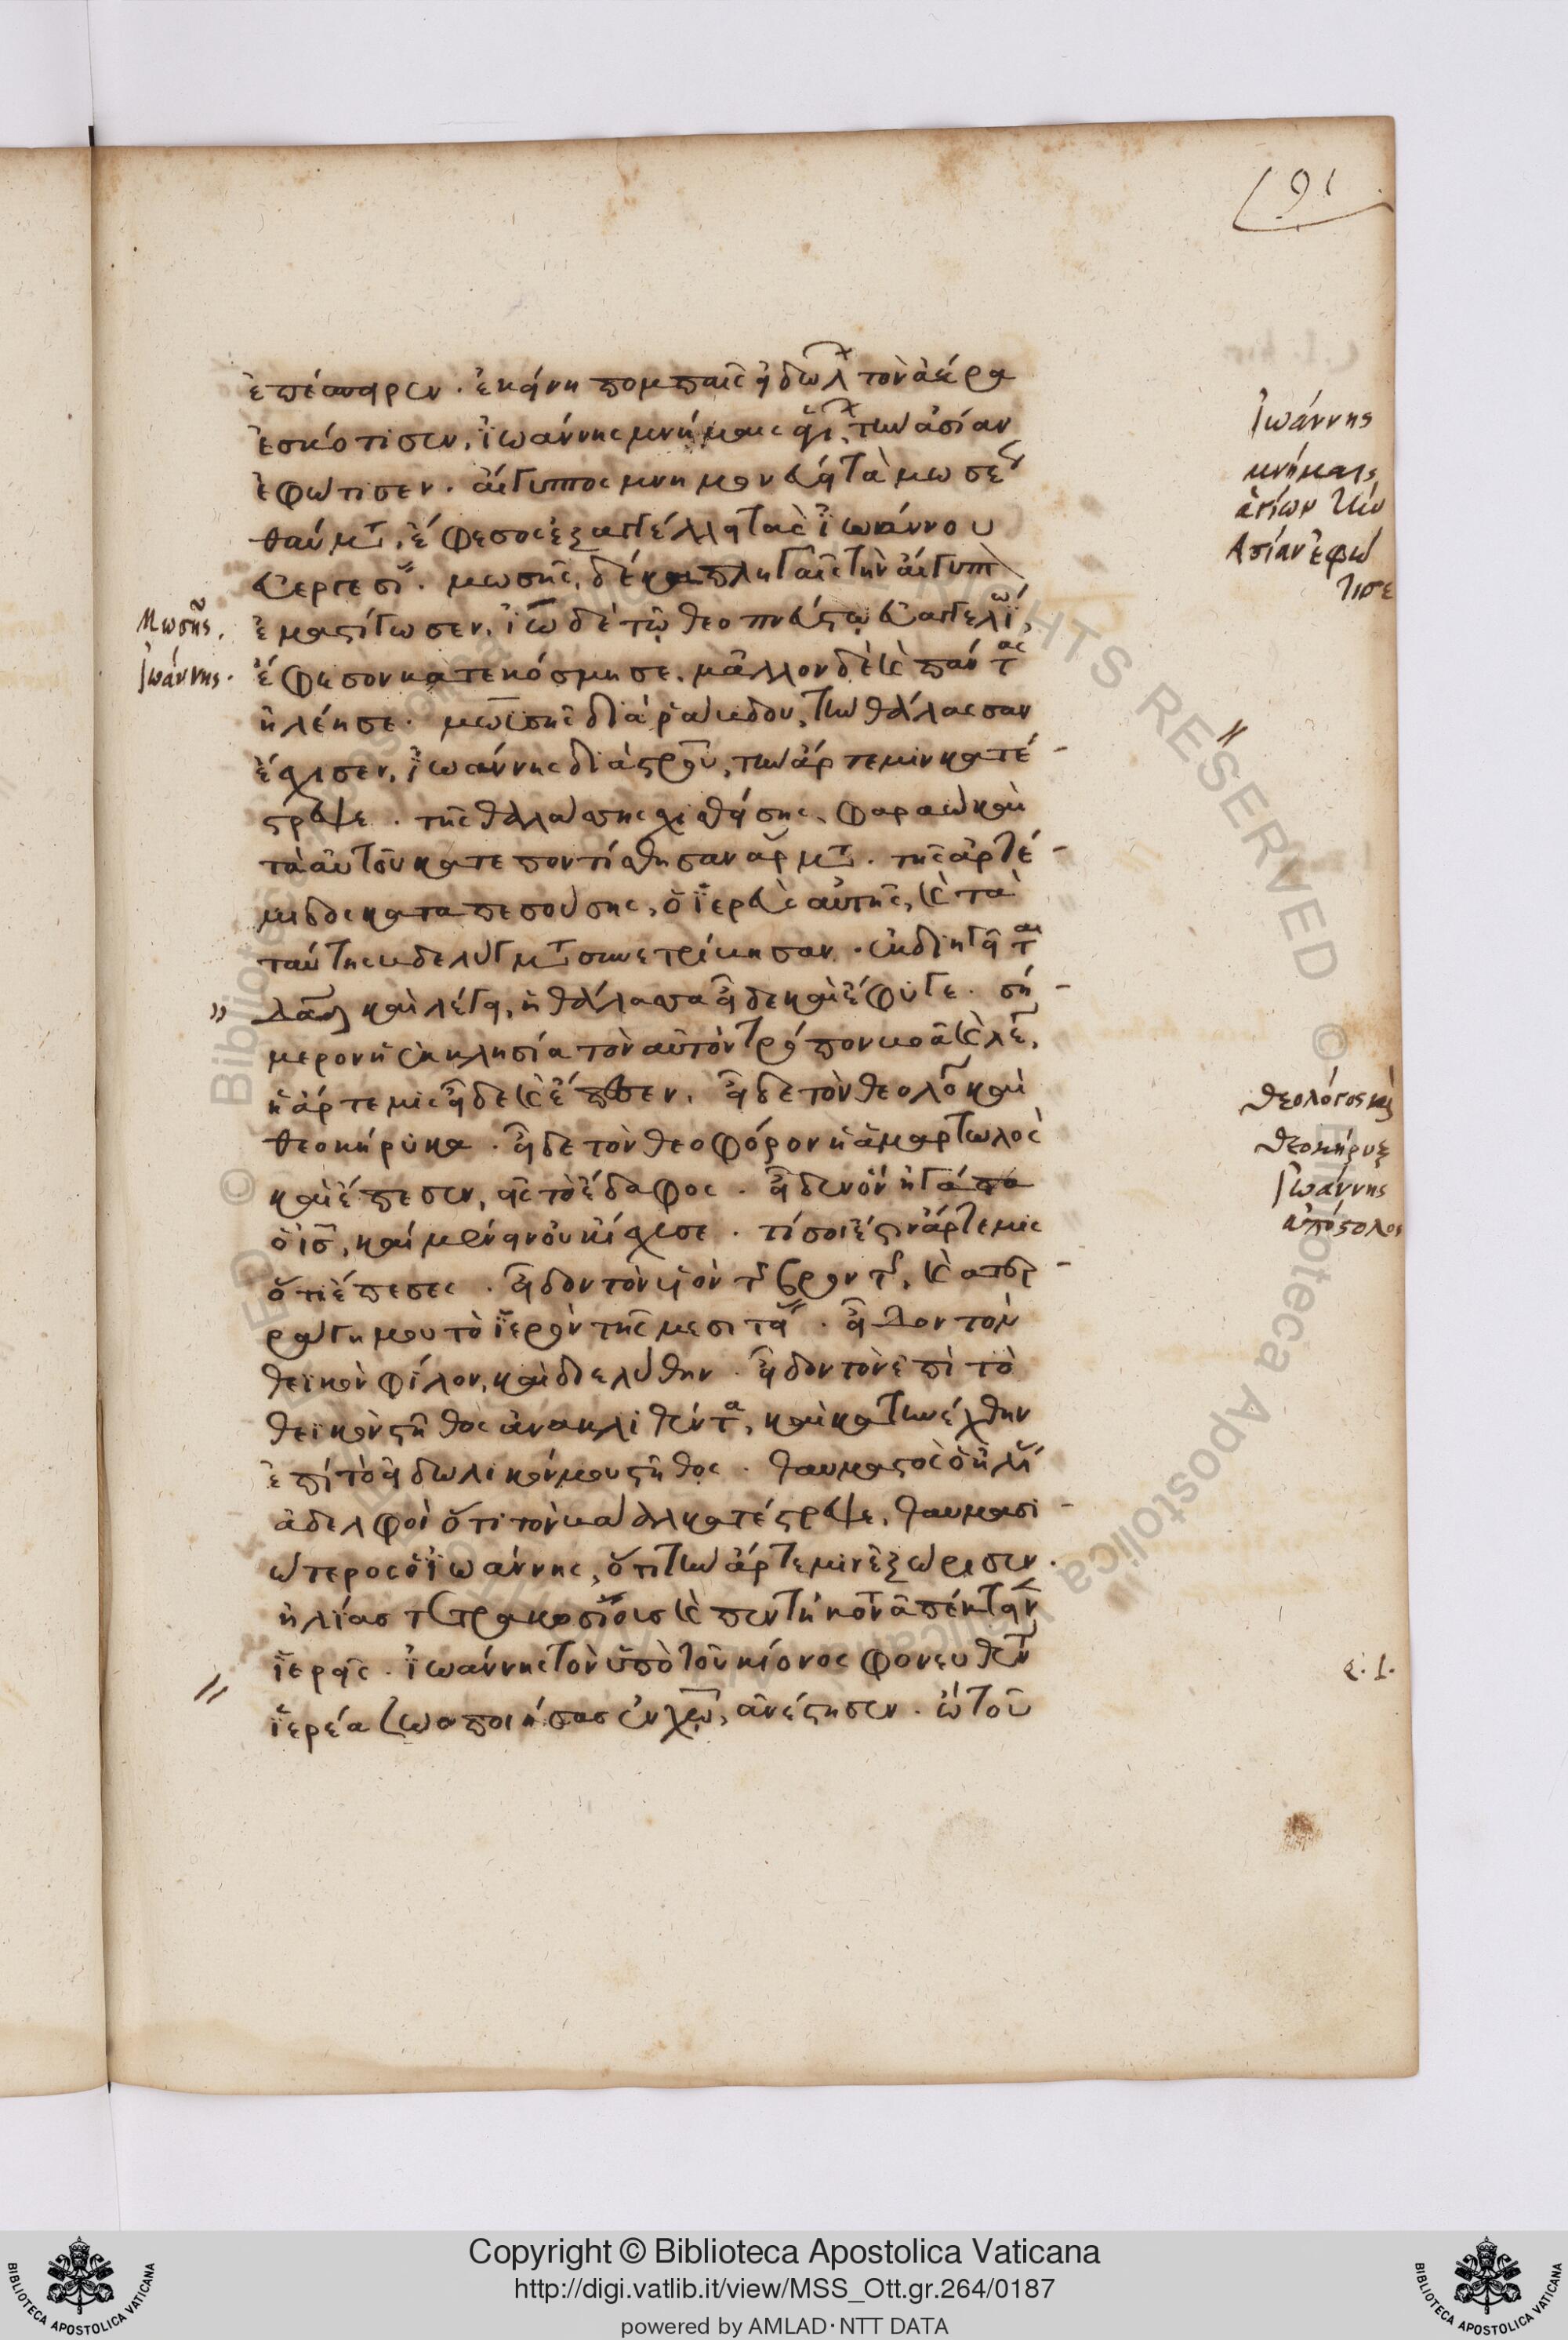 91
ἐπέσυρεν. ἐκείνη πομπαῖς εἰδώλων τὸν ἀέρα
ἐσκότισεν, Ἰωάννης μνήμαις ἁγίων τὴν ἀσίαν
ἐφώτισεν. αἴγυπτος μνημονεύει τὰ μωσέως
θαύματα, ἔφεσος ἐξαγγέλλει τὰς Ἰωάννου
εὐεργεσίας. μωσῆς, δέκα πληγαῖς τὴν αἴγυπτον
ἐμαστίγωσεν, ἰω δὲ τῷ θεοπνεύστῳ εὐαγγελίῳ,
ἔφεσον κατεκόσμησε. μᾶλλον δὲ καὶ πάντας
ἠλέησε. μωϋσῆς διὰ ῥάβδου, τὴν θάλασσαν
ἔσχισεν, Ἰωάννης διὰ σταυροῦ, τὴν ἄρτεμιν κατέ-
στρεψε. τῆς θαλάσσης σχισθείσης, φαραὼ καὶ
τὰ αὐτοῦ κατεποντίσθησαν ἅρματα. τῆς ἀρτέ-
μιδος καταπεσούσης, ὁ ἱερεὺς αὐτῆς, καὶ τὰ
ταύτης βδελύγματα συνετρίβησαν.
καὶ λέγει, ἡ θάλασσα εἶδε καὶ ἔφυγε. σή-
μερον ἡ ἐκκλησία τὸν αὐτὸν τρόπον βοᾷ καὶ λέγει,
ἡ ἄρτεμις εἶδε καὶ ἔπεσεν. εἶδε τὸν θεολόγον καὶ
θεοκήρυκα. εἶδε τὸν θεοφόρον ἡ ἁμαρτωλὸς
καὶ ἔπεσεν, εἰς τὸ ἔδαφος. εἶδεν ὃν ἠγάπα
ὁ ις, καὶ μένειν οὐκ ἴσχυσε. τί σοι ἐστιν ἄρτεμις
ὅτι ἔπεσες. εἶδον τὸν υἱὸν τῆς βροντῆς, καὶ
ἐρράγη μου τὸ ἱερὸν τῆς μεσιτείας. εἶδον τὸν
θεϊκὸν φίλον, καὶ διελύθην. εἶδον τὸν ἐπὶ τὸ
θεϊκὸν στῆθος ἀνακλιθέντα, καὶ κατηνέχθην
ἐπὶ τὸ εἰδωλικόν μου στῆθος. θαυμαστὸς ὁ ἠλίας
ἀδελφοὶ ὅτι τὸν βάαλ κατέστρεψε, θαυμασι-
ώτερος ὁ Ἰωάννης, ὅτι τὴν ἄρτεμιν ἐξώρισεν.
ἠλίας τετρακοσίους καὶ πεντήκοντα ἀπέκτεινεν
ἱερεῖς. Ἰωάννης τὸν ὑπὸ τοῦ κίονος φονευθέντα
ἱερέα ζωοποιήσας ἐν χω, ἀνέστησεν. ὢ τοῦ
Μωσῆς.
Ἰωάννης.
Ἰωάννης
μνήμαις
ἁγίων τὴν
Ἀσίαν ἐφώ
τισε
θεολόγος καὶ
θεοκήρυξ
Ἰωάννης
ἀπόστολος
Copyright © Biblioteca Apostolica Vaticana
http://digi.vatlib.it/view/MSS_Ott.gr.264/0187
powered by AMLAD·NTT DATA
BIBLIOTECA APOSTOLICA VATICANA
BIBLIOTECA APOSTOLICA VATICANA